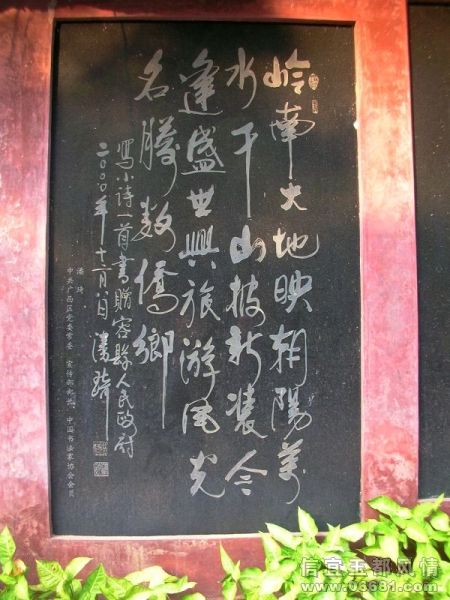 岭南大地映朝陽萬
水千山披新裝今
逢盛世興旅游風光
名勝数僑鄉
写小诗一首書贈容縣人民政府
二〇〇〇年十二月八日 潘琦
潘琦
中共广西区党委常委 宣传部部长 中国书法家协会会员
信宜玉都风情
www.03681.com